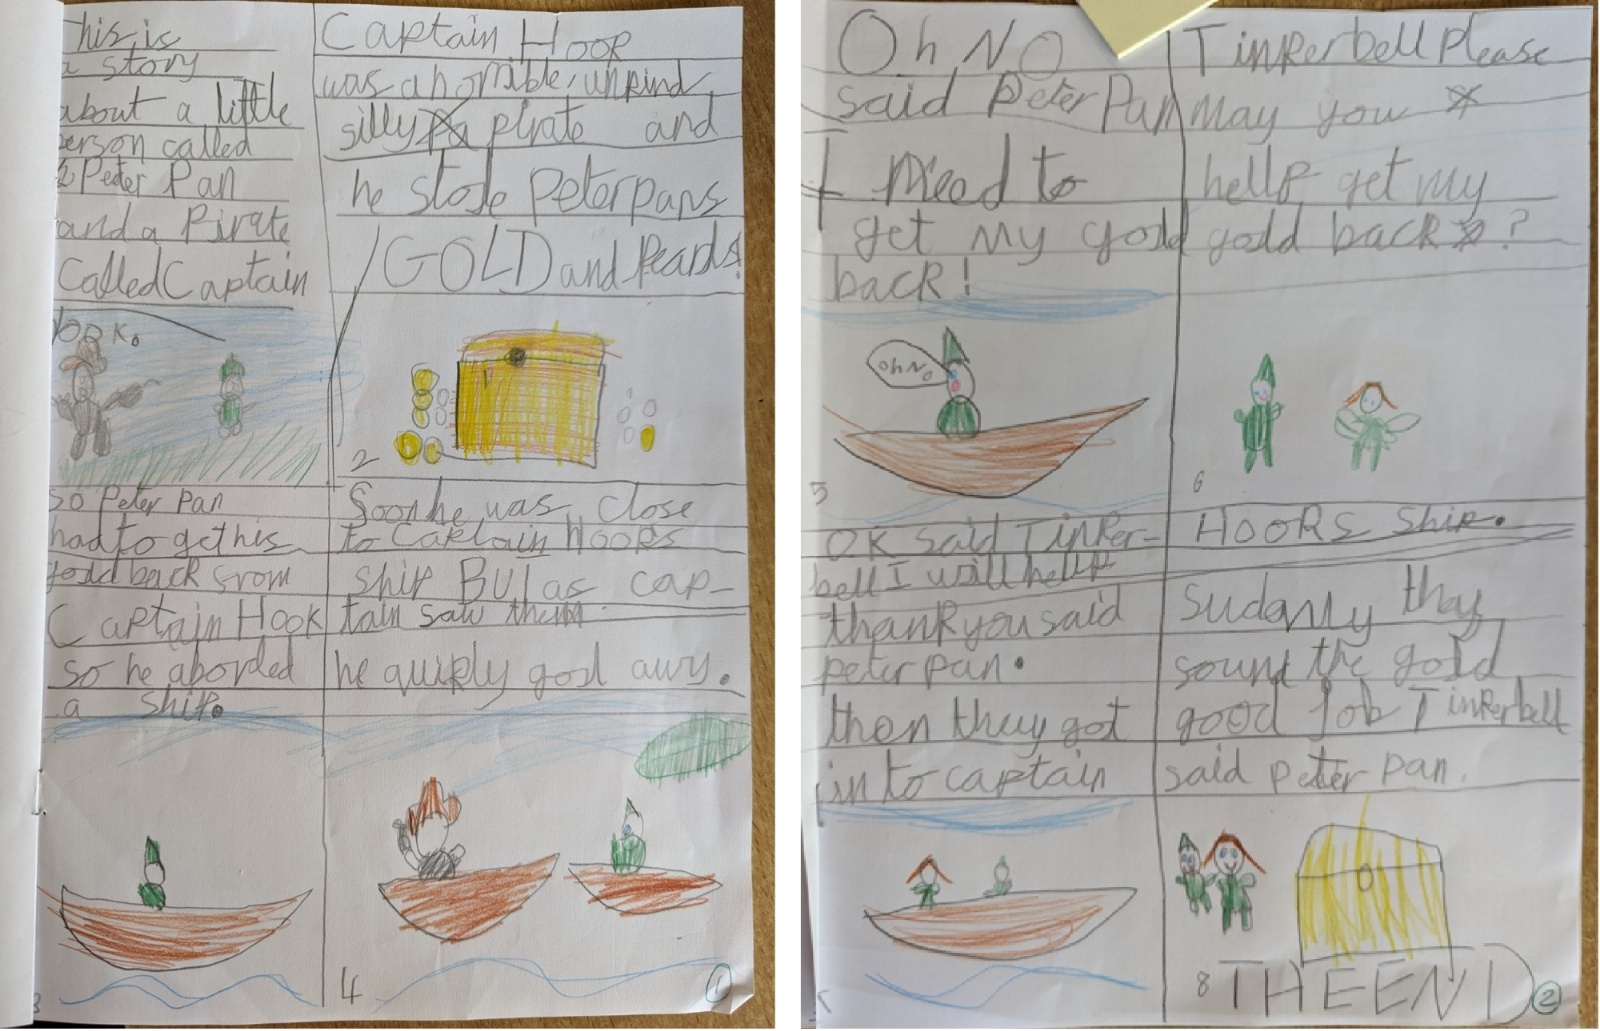 This is
a story
about a little
person called
Peter Pan
and a Pirate
Called Captain
Hook.
Captain Hook
was a horrible, unkind,
silly pirate and
he stole Peter pans
GOLD and Pearls!
2
So Peter Pan
had to get his
gold back from
Captain Hook
so he aborded
a ship.
3
Soon he was close
to Captain Hooks
ship BUt as cap-
tain saw them
he quikly got awy.
4
1
Oh NO
said Peter Pan
I need to
get my gold
back!
Oh No
5
Tinkerbell Please
May you
hellp get my
gold back ?
6
OK said Tinker-
bell I will hellp
thank you said
peter pan.
then they got
in to captain
HOOKS ship.
sudanly thay
found the gold
good Job Tinkerbell
said peter pan.
8
THE END
2